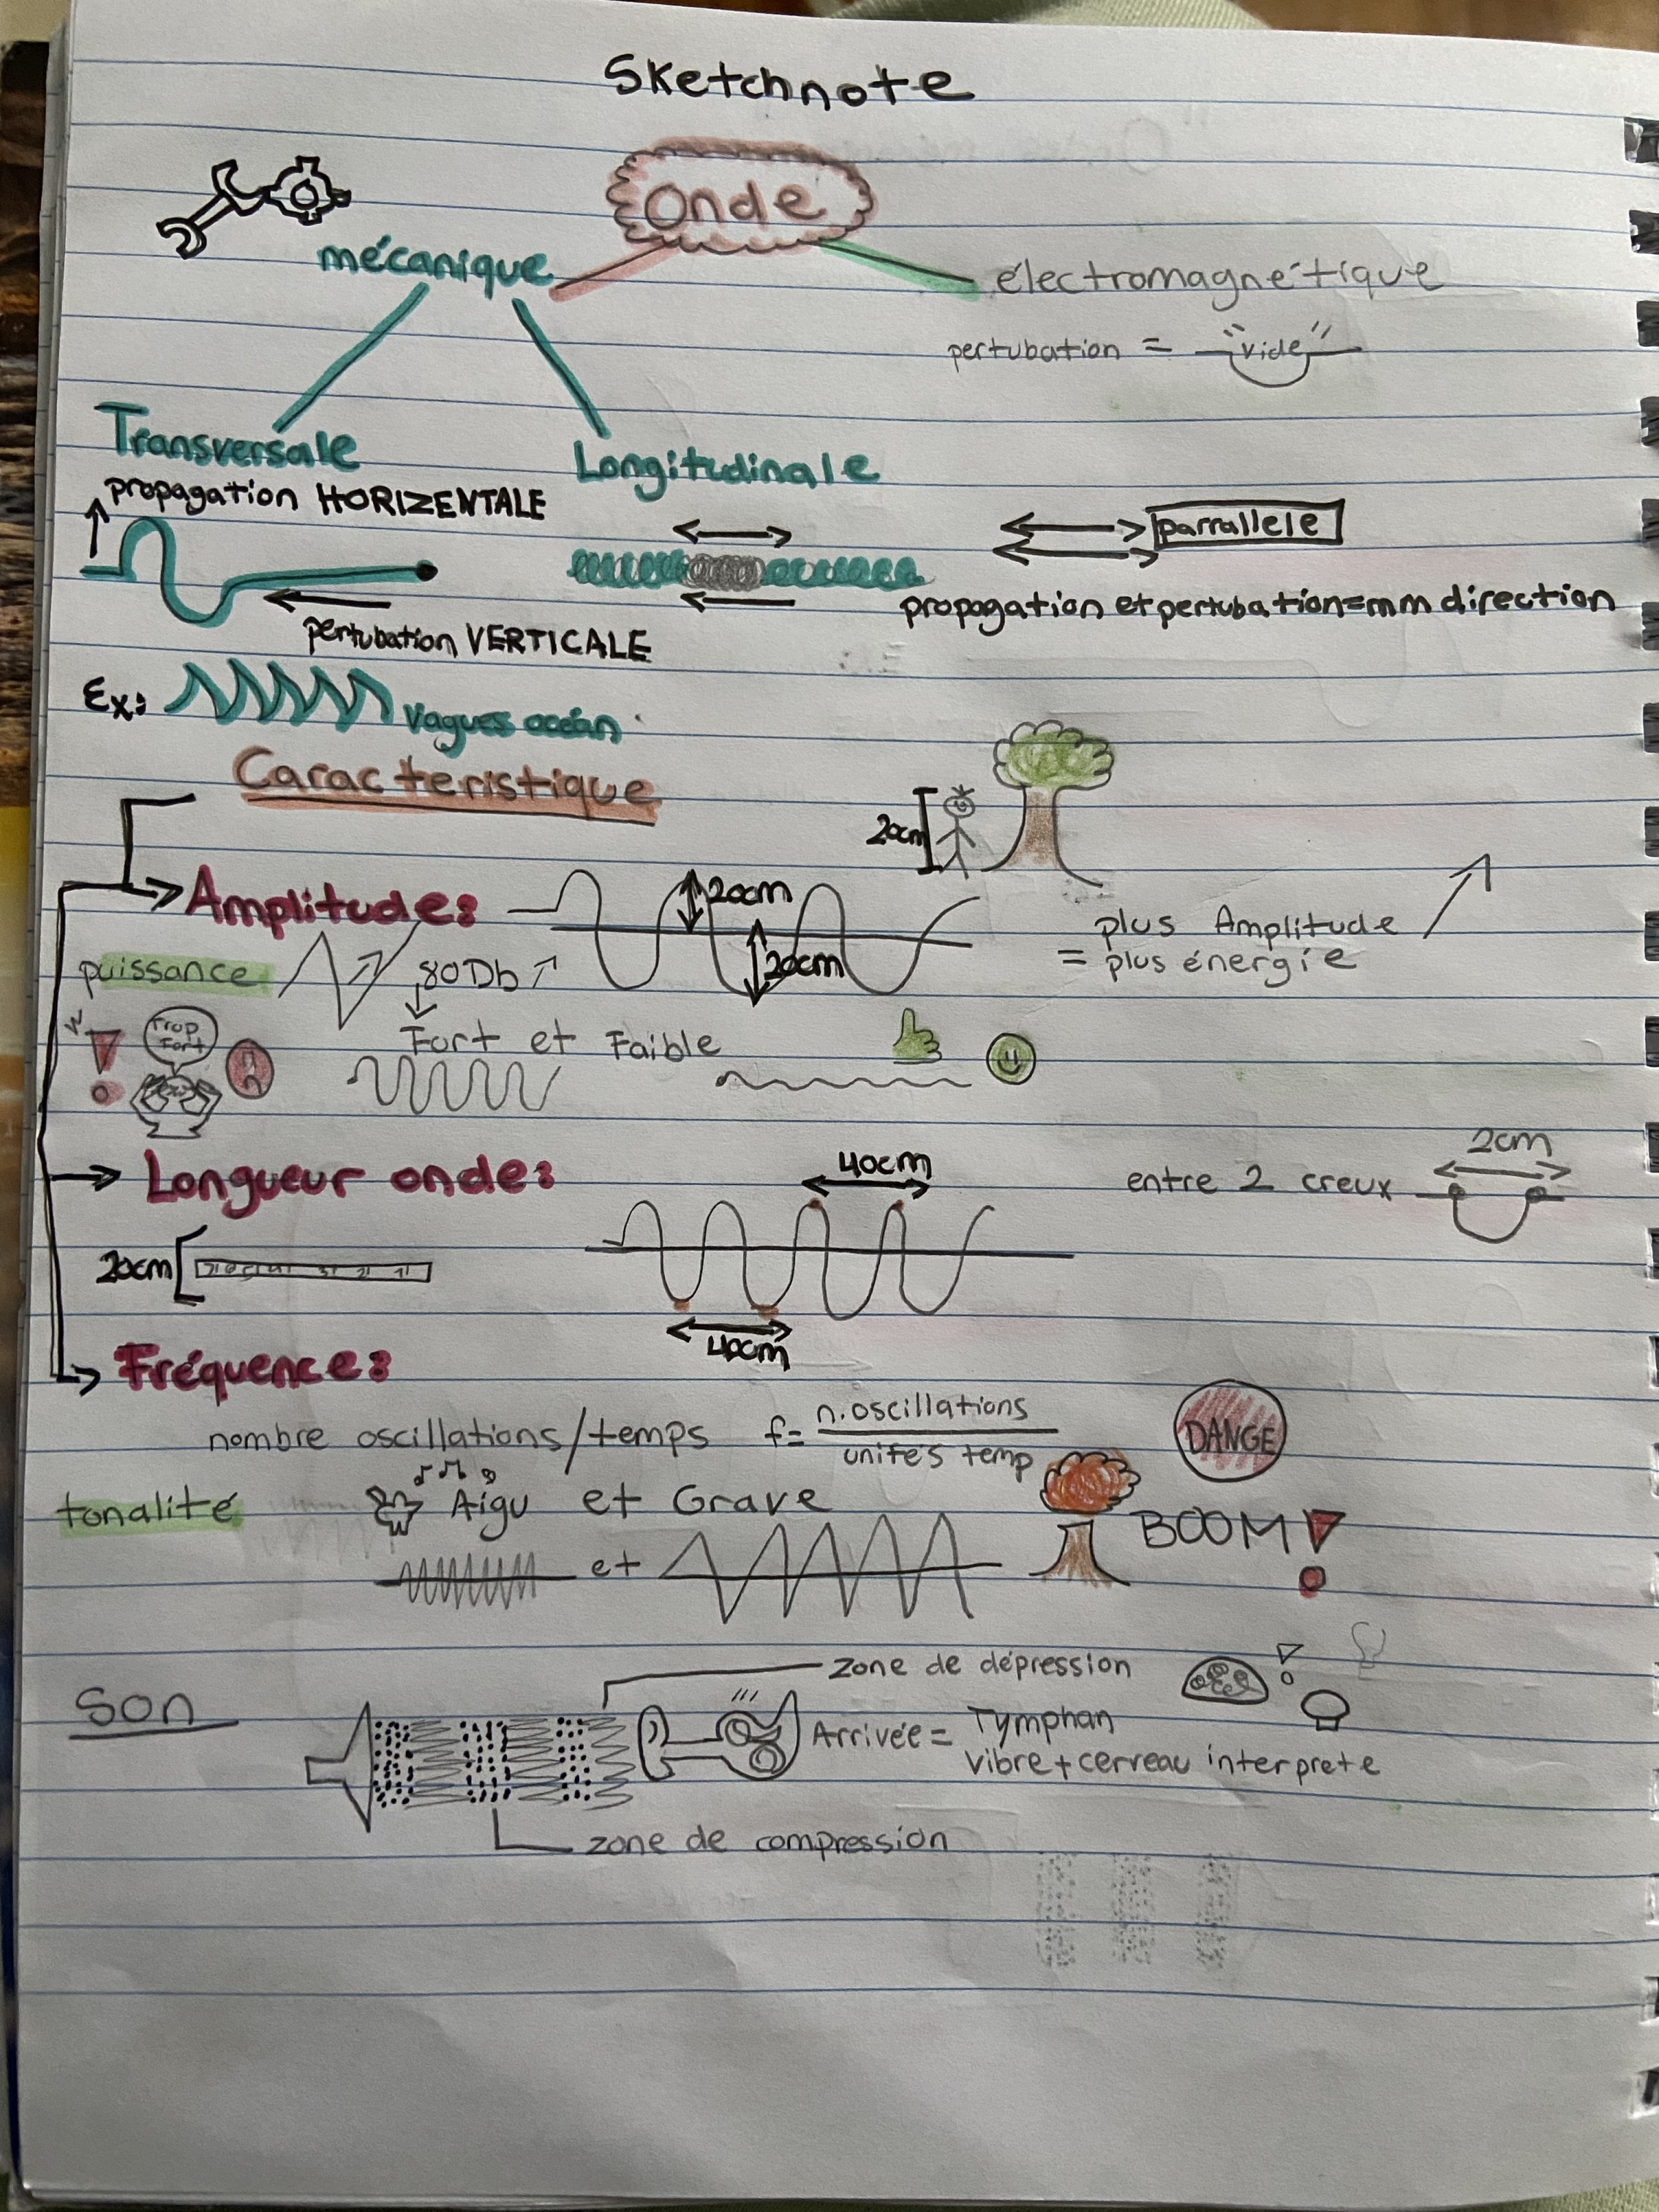 Sketchnote
Onde
mécanique
électromagnétique
pertubation = "vide"
Transversale
Longitudinale
propagation HORIZENTALE
parrallele
propagation et pertubation=mm direction
pertubation VERTICALE
Ex:
vagues océan
Caracteristique
20cm
Amplitude:
20cm
20cm
plus Amplitude
= plus énergie
puissance
80Db
Trop
Fort
Fort et Faible
Longueur onde:
40cm
entre 2 creux
2cm
20cm
40cm
Fréquence:
nombre oscillations/temps
f= n.oscillations
unités temp
DANGE
tonalité
Aigu et Grave
et
BOOM!
Son
zone de dépression
Arrivée = Tymphan
vibre + cerveau interprete
zone de compression